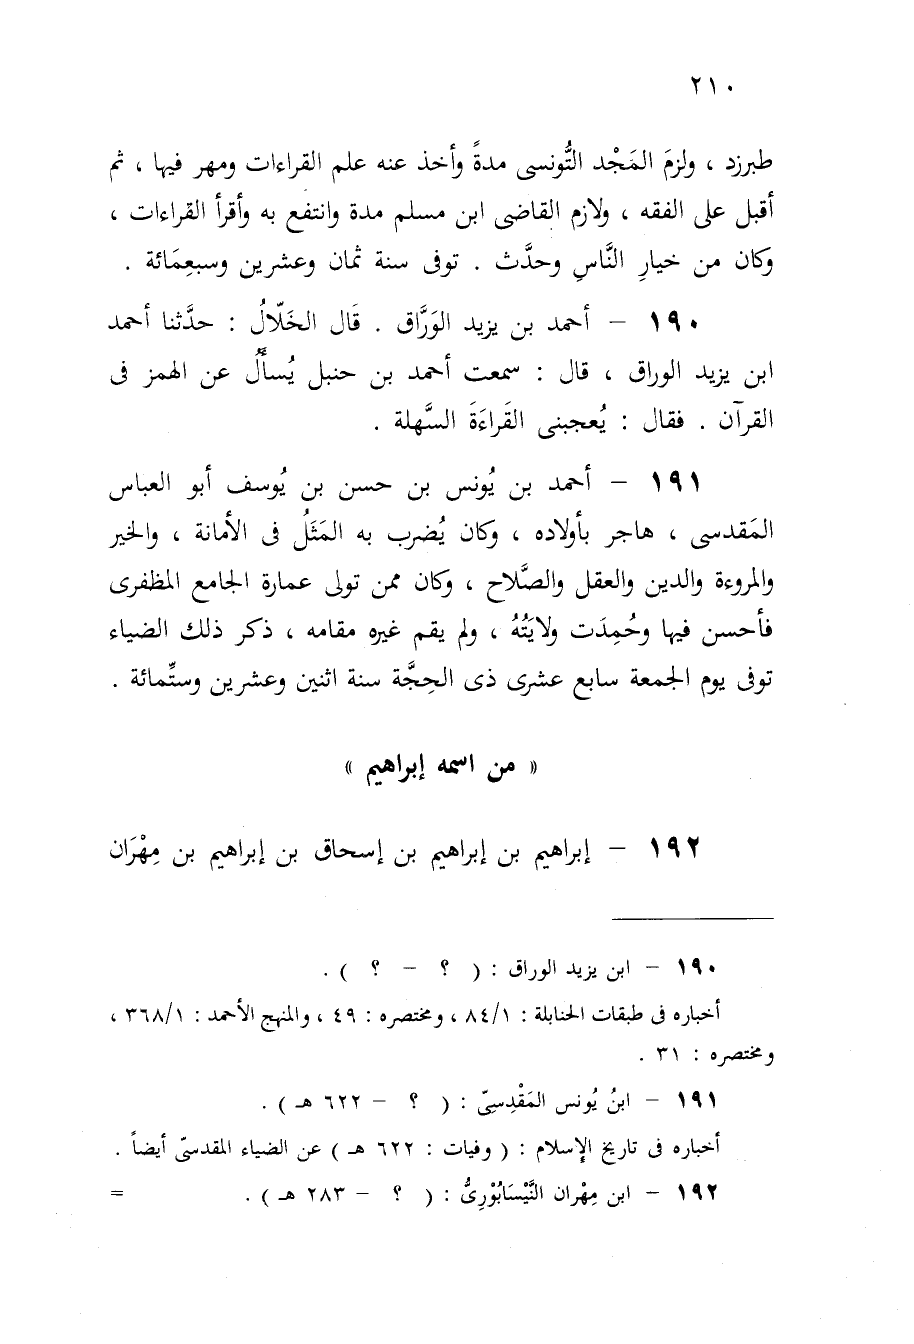 ٢١٠
طبرزد ، ولزمَ المَجْد التُّونسى مدةً وأخذ عنه علم القراءات ومهر فيها ، ثم
أقبل على الفقه ، ولازم القاضى ابن مسلم مدة وانتفع به وأقرأ القراءات ،
وكان من خيارِ النَّاسِ وحدَّث . توفى سنة ثمان وعشرين وسبعِمَائة .
١٩٠ – أحمد بن يزيد الوَرَّاق . قَال الخَلّالُ : حدَّثنا أحمد
ابن يزيد الوراق ، قال : سمعت أحمد بن حنبل يُسألُ عن الهمز فى
القرآن . فقال : يُعجبنى القَراءَةَ السَّهلة .
١٩١ – أحمد بن يُونس بن حسن بن يُوسف أبو العباس
المَقدسى ، هاجر بأولاده ، وكان يُضرب به المَثَلُ فى الأمانة ، والخير
والمروءة والدين والعقل والصَّلاح ، وكان ممن تولى عمارة الجامع المظفرى
فأحسن فيها وحُمِدَت ولايَتُهُ ، ولم يقم غيره مقامه ، ذكر ذلك الضياء
توفى يوم الجمعة سابع عشرى ذى الحِجَّة سنة اثنين وعشرين وستِّمائة .
« من اسمه إبراهيم »
١٩٢ – إبراهيم بن إبراهيم بن إسحاق بن إبراهيم بن مِهْرَان
١٩٠ – ابن يزيد الوراق : ( ؟ – ؟ ) .
أخباره فى طبقات الحنابلة : ٨٤/١ ، ومختصره : ٤٩ ، والمنهج الأحمد : ٣٦٨/١ ،
ومختصره : ٣١ .
١٩١ – ابنُ يُونس المَقْدِسِىّ : ( ؟ – ٦٢٢ هـ ) .
أخباره فى تاريخ الإسلام : ( وفيات : ٦٢٢ هـ ) عن الضياء المقدسىّ أيضاً .
١٩٢ – ابن مِهْران النَّيْسَابُوْرِىُّ : ( ؟ – ٢٨٣ هـ ) . =